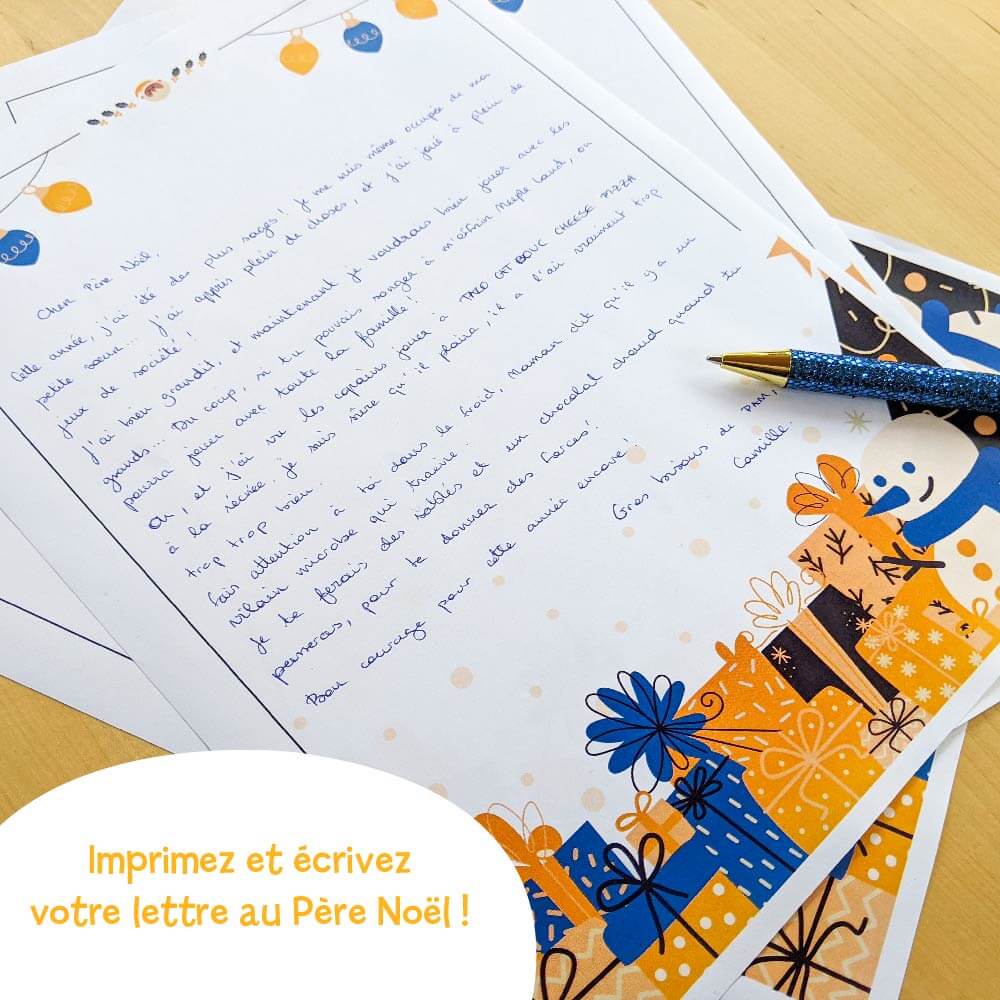 Cher Père Noël,
Cette année, j'ai été des plus sages ! Je me suis même occupée de ma
petite soeur... J'ai appris plein de choses, et j'ai joué à plein de
jeux de société !
J'ai bien grandit, et maintenant je voudrais bien jouer avec les
grands... Du coup, si tu pouvais songer à m'offrir Meeple Land, on
pourra jouer avec toute la famille !
Oh, et j'ai vu les copains jouer à TACO CAT BOUC CHEESE PIZZA
à la récrée. Je suis sûre qu'il plaira, il a l'air vraiment trop
trop trop bien.
Fais attention à toi dans le froid, Maman dit qu'il y a un
vilain microbe qui traine.
Je te ferais des sablés et un chocolat chaud quand tu
passeras, pour te donner des forces !
Bon courage pour cette année encore !
Gros bisous de PAM,
Camille.
Imprimez et écrivez
votre lettre au Père Noël !